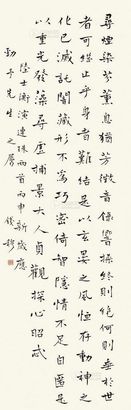 尋煙染芬薰息猶芳徵音錄響操終則絕何則垂於世
者可繼止乎身者難結是以玄晏之風恆存動神之
化已滅託闇藏形不為巧密倚智隱情不足自匿是
以重光發藻尋虛捕景大人貞觀探心昭忒
陸士衡演連珠兩首丙申新歲應
勁予先生之屬
錢穆